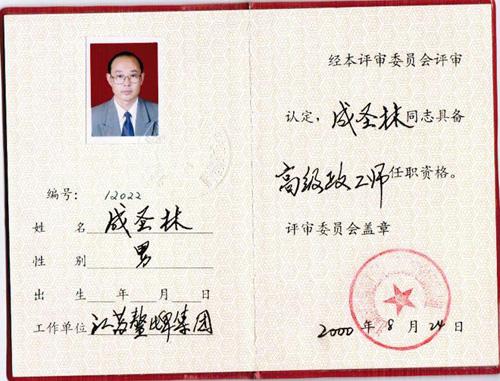 编号: 12022
姓 名 成圣林
性 别 男
出 生 年 月 日
工作单位 江苏鳌牌集团
经本评审委员会评审
认定, 成圣林同志具备
高级政工师任职资格。
评审委员会盖章
2000 年 8 月 24 日